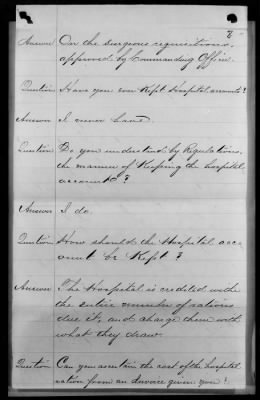 8
Answer On the surgeons requisitions,
approved by Commanding Office.
Question Have you ever Kept Hospital accounts?
Answer I never have.
Question Do you understand by Regulations,
the manner of Keeping the hospital
accounts?
Answer I do.
Question How should the Hospital acc
ount be Kept?
Answer The Hospital is credited with
the entire number of rations
due it, and charge them with
what they draw.
Question Can you ascertain the cost of the hospital
ration from an invoice given you?